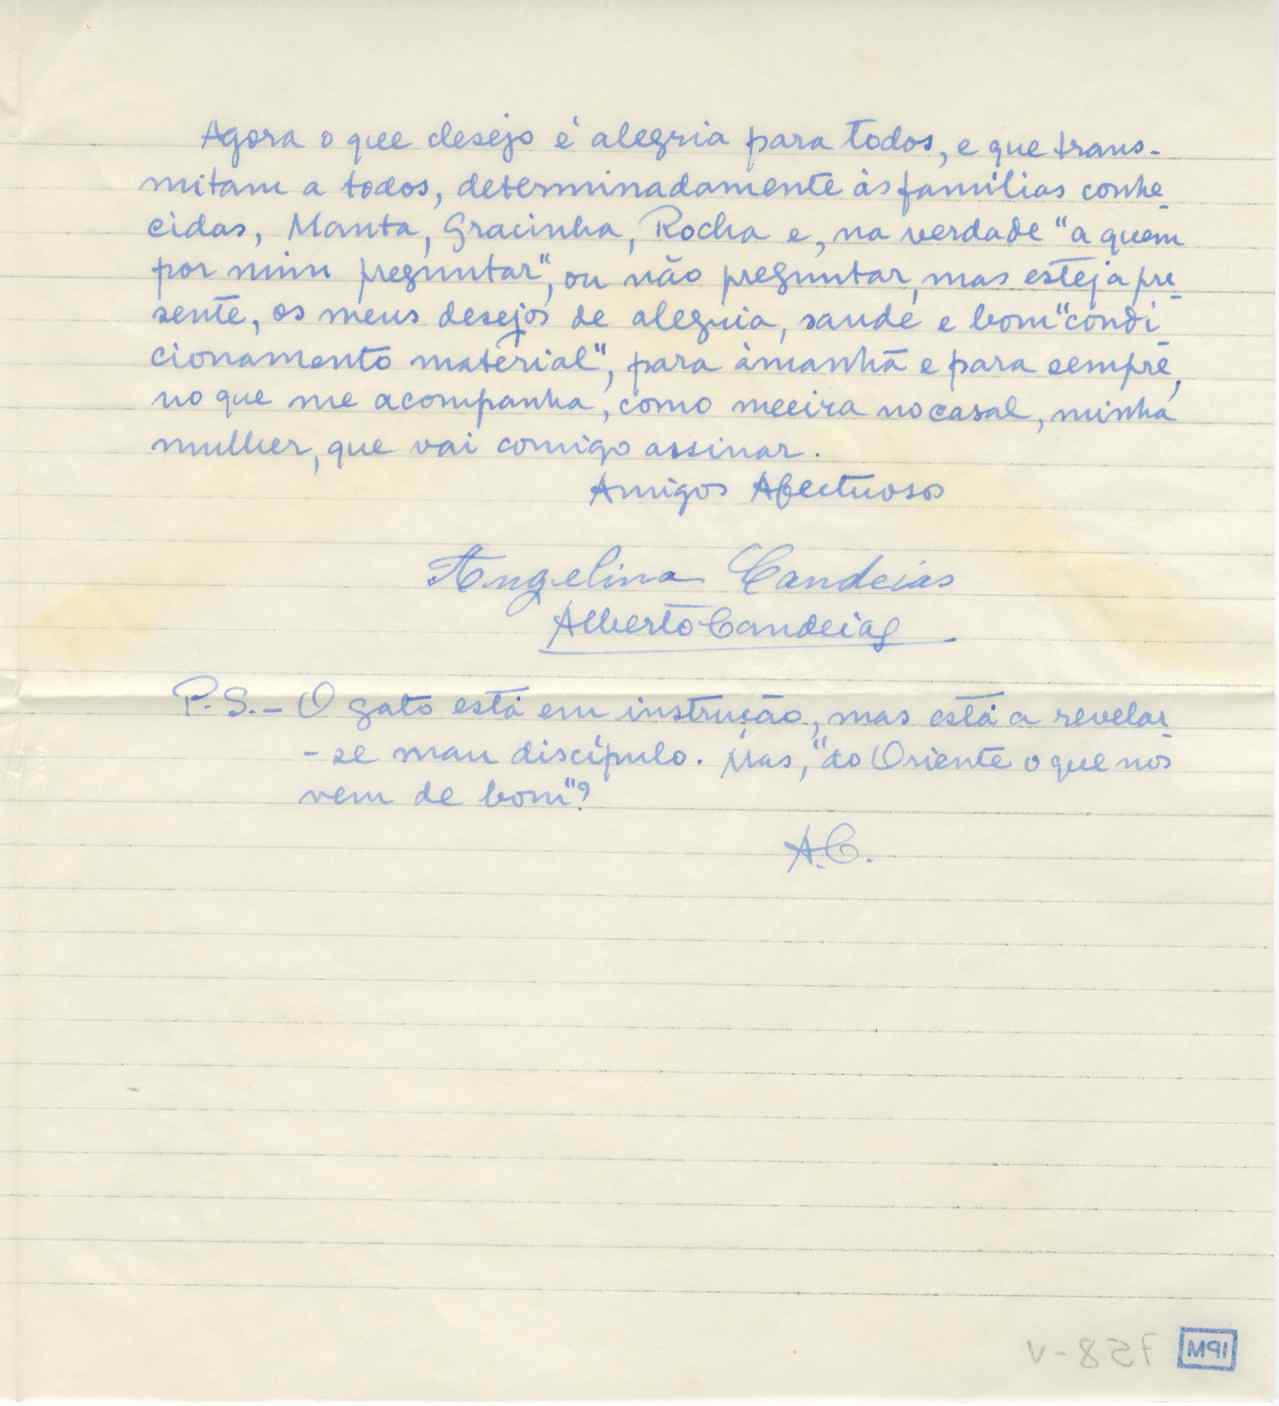 Agora o que desejo é alegria para todos, e que trans-
mitam a todos, determinadamente às famílias conhe-
cidas, Manta, Gracinha, Rocha e, na verdade "a quem
por mim preguntar", ou não preguntar, mas esteja pre-
sente, os meus desejos de alegria, saude e bom "condi-
cionamento material", para àmanhã e para sempre,
no que me acompanha, como meeira no casal, minha
mulher, que vai comigo assinar.
Amigos Afectuosos
Angelina Candeias
Alberto Candeias
P.S. - O gato está em instrução, mas está a revelar-
-se mau discípulo. Mas, "do Oriente o que nos
vem de bom"?
A.C.
758-V
IPM